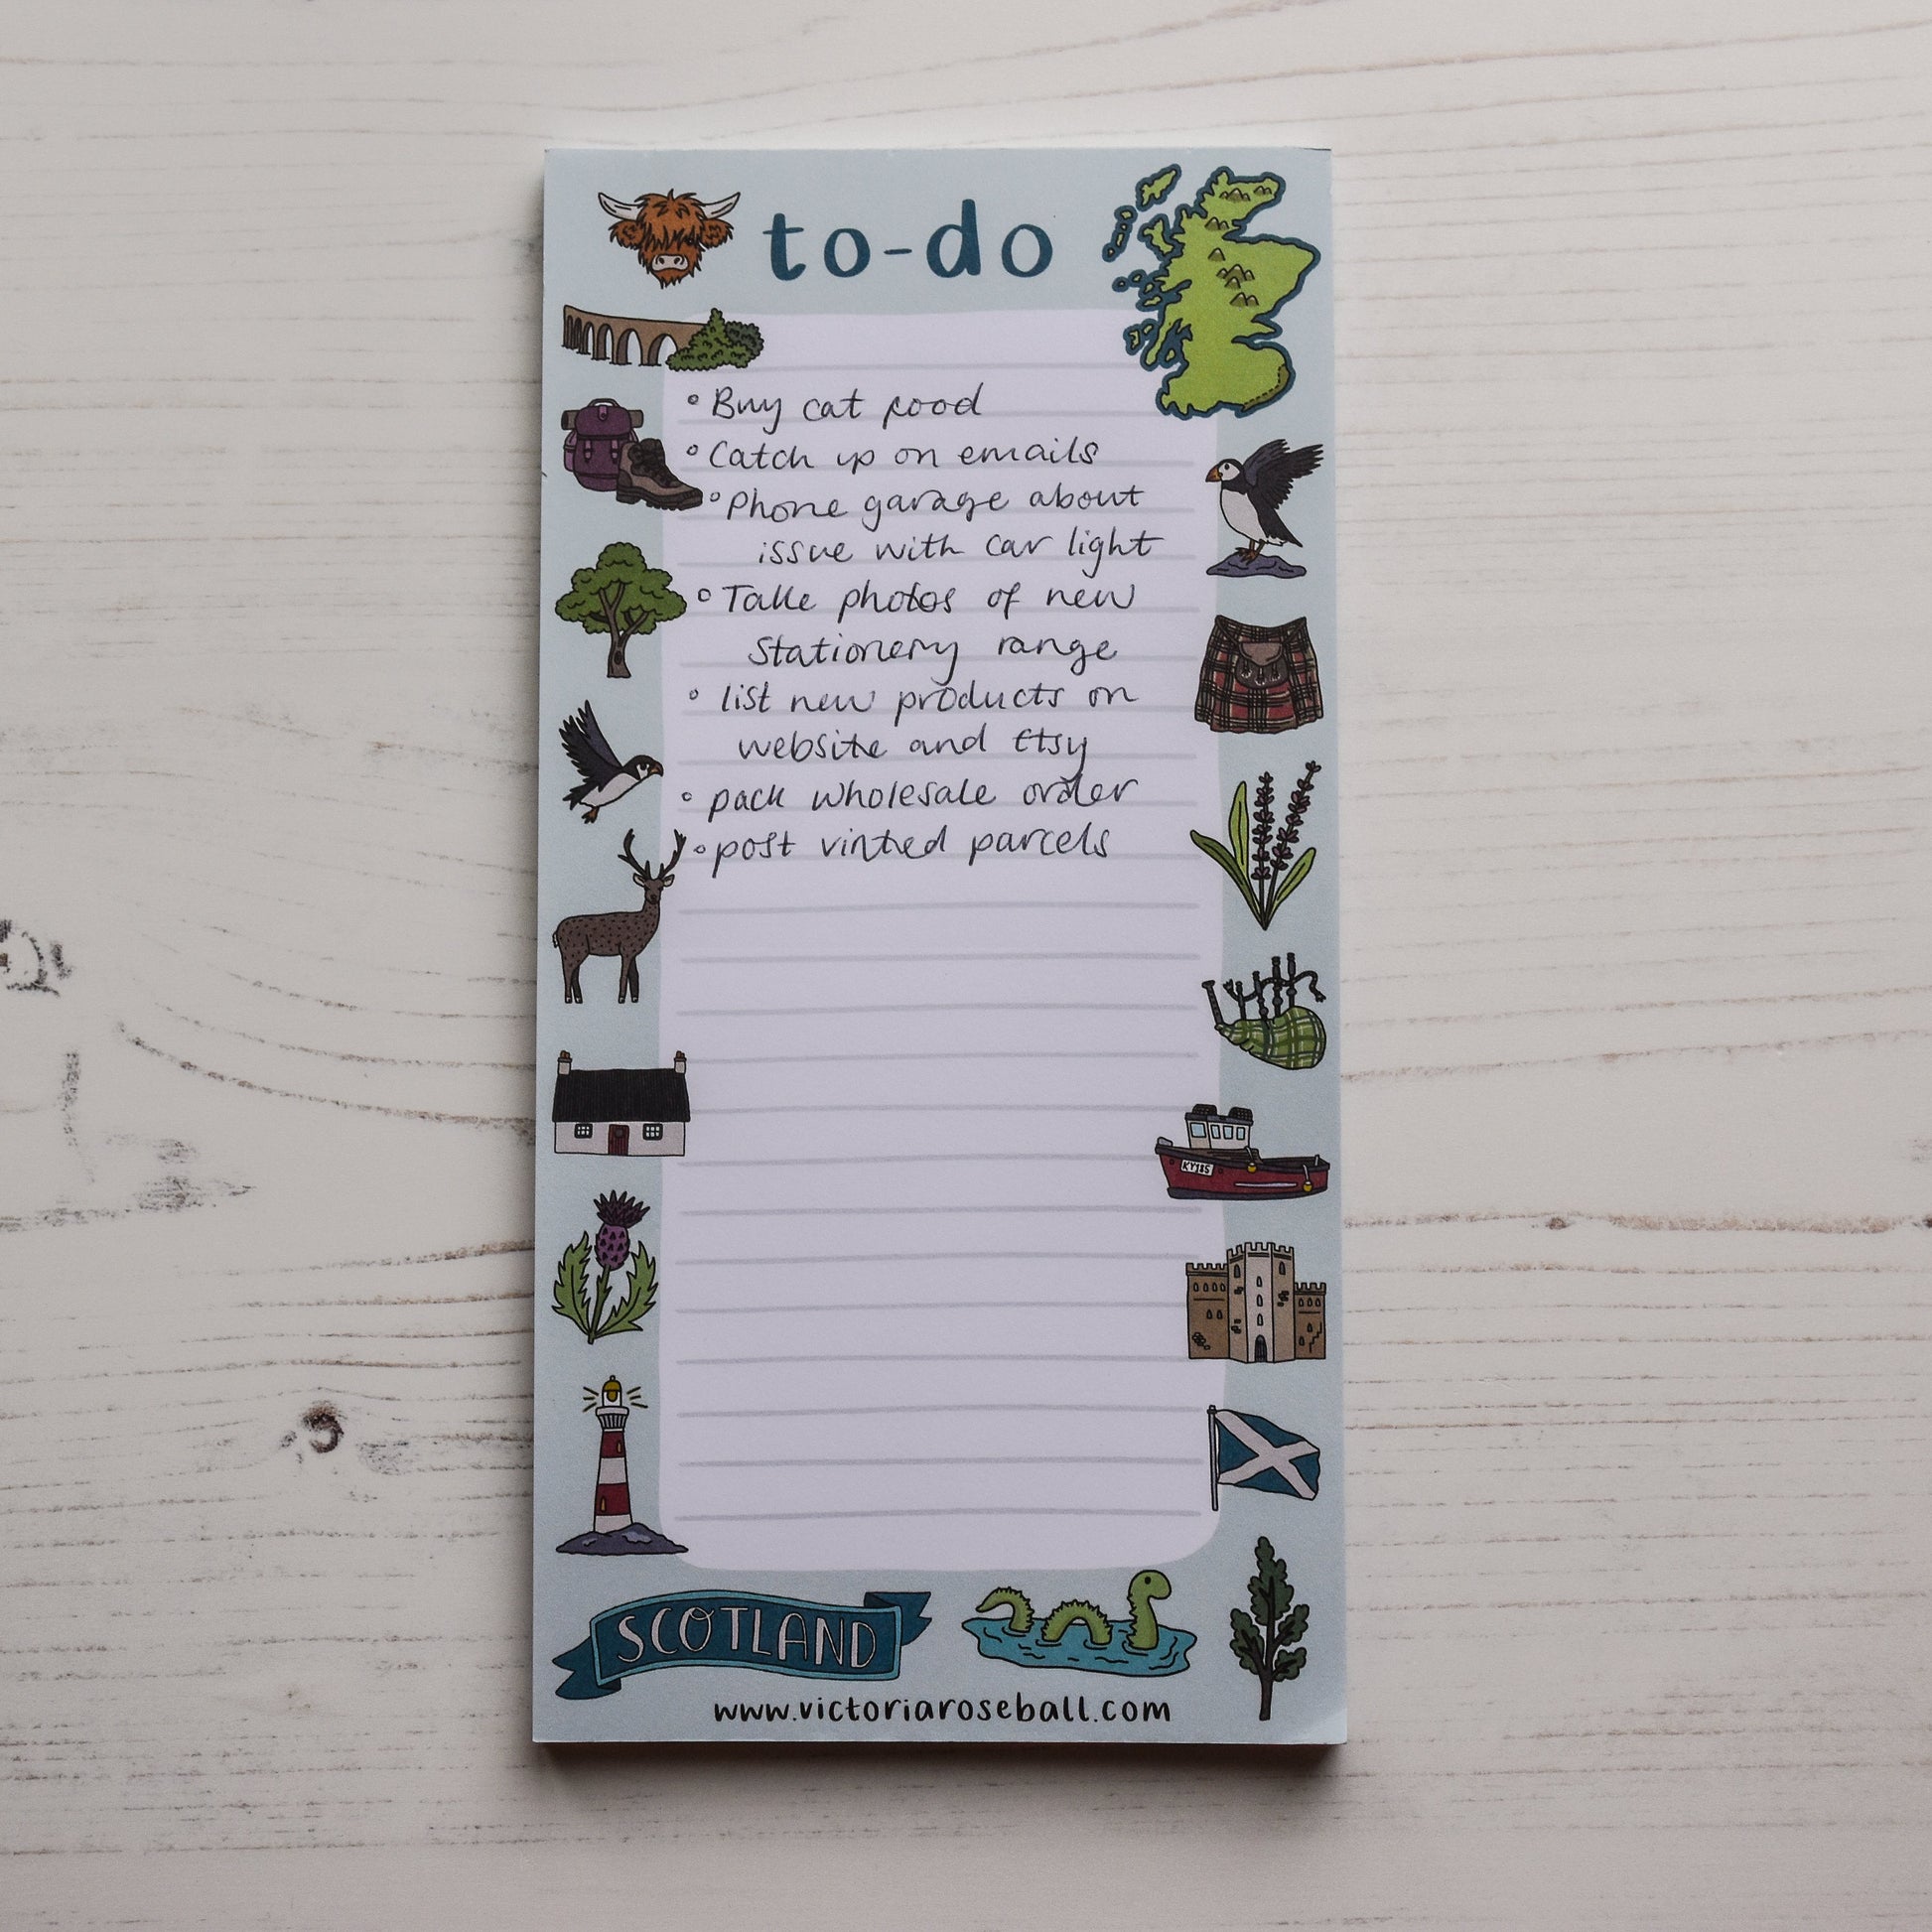 to-do
° Buy cat food
° Catch up on emails
° Phone garage about
issue with car light
° Take photos of new
Stationery range
° list new products on
website and Etsy
° pack wholesale order
° post vinted parcels
KY185
SCOTLAND
www.victoriaroseball.com